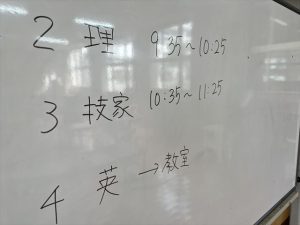 2 理 9 35~10:25
3 技家 10:35~11:25
4 英 →教室